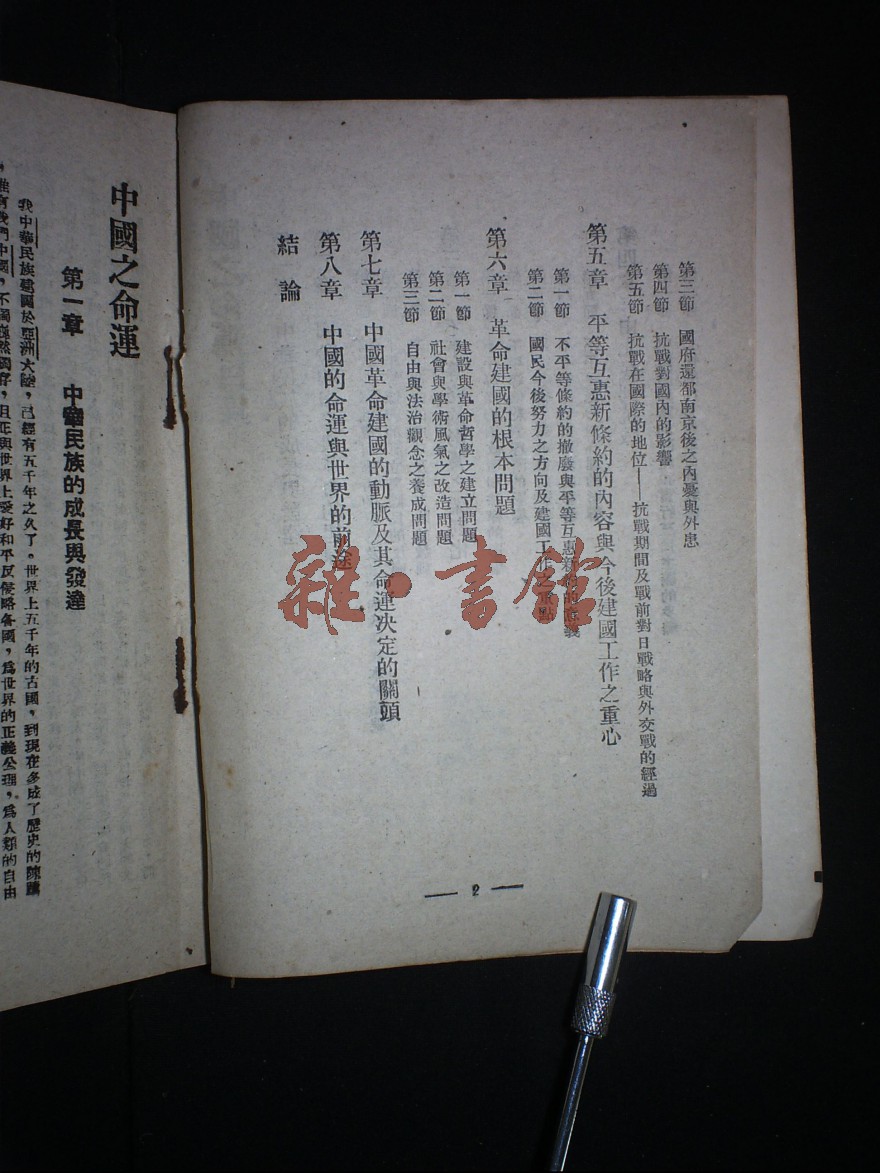 第三節　國府還都南京後之內憂與外患
第四節　抗戰對國內的影響
第五節　抗戰在國際的地位——抗戰期間及戰前對日戰略與外交戰的經過
第五章　平等互惠新條約的內容與今後建國工作之重心
第一節　不平等條約的撤廢與平等互惠新
第二節　國民今後努力之方向及建國工作之重點
第六章　革命建國的根本問題
第一節　建設與革命哲學之建立問題
第二節　社會與學術風氣之改造問題
第三節　自由與法治觀念之養成問題
第七章　中國革命建國的動脈及其命運決定的關頭
第八章　中國的命運與世界的前途
結論
— 2 —
中國之命運
第一章　中華民族的成長與發達
我中華民族建國於亞洲大陸，已經有五千年之久了。世界上五千年的古國，到現在多成了歷史的陳蹟
，惟有我們中國，不獨巍然獨存，且正與世界上愛好和平反侵略各國，爲世界的正義公理，爲人類的自由
雜·書館